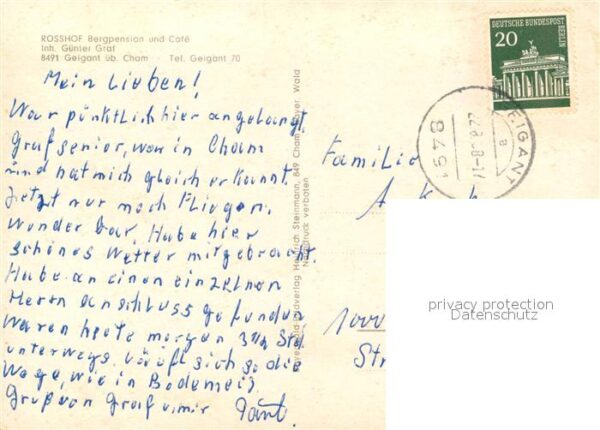 ROSSHOF Bergpension und Café
Inh. Günter Graf
8491 Geigant üb. Cham Tel. Geigant 70
Mein Lieben!
War pünktlich hier angelangt.
Graf senior, war in Cham
und hat mich gleich erkannt.
Jetzt nur noch Fliegen.
Wunderbar. Habe hier
schönes Wetter mitgebracht.
Habe an einen einzelnen
Herrn anschluss gefunden
Waren heute morgen 3 Std.
unterwegs. läuft sich so die
Wege, wie in Bodemeis.
Gruß von Graf u. mir
Heinrich Steinmann, 849 Cham Bayer. Wald
Nachdruck verboten
DEUTSCHE BUNDESPOST
BERLIN
20
GEIGANT
a
8491
Familie
1000
Str
privacy protection
Datenschutz